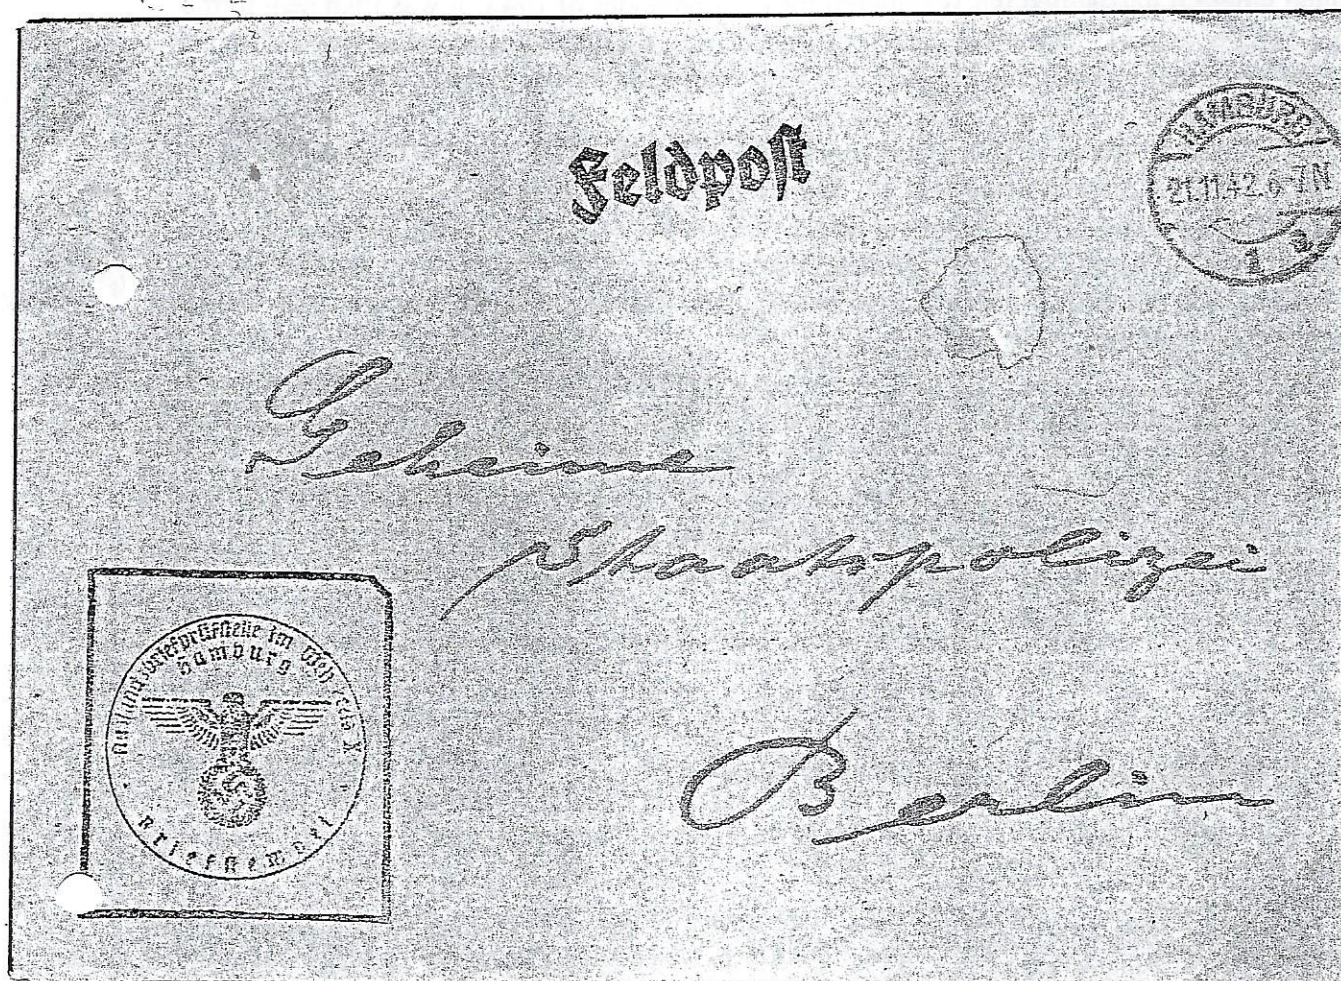 Feldpost
HAMBURG
21.11.42.6-7N
1
Geheime
Staatspolizei
Berlin
Auslandsbriefprüfstelle im
Hamburg
Briefstempel